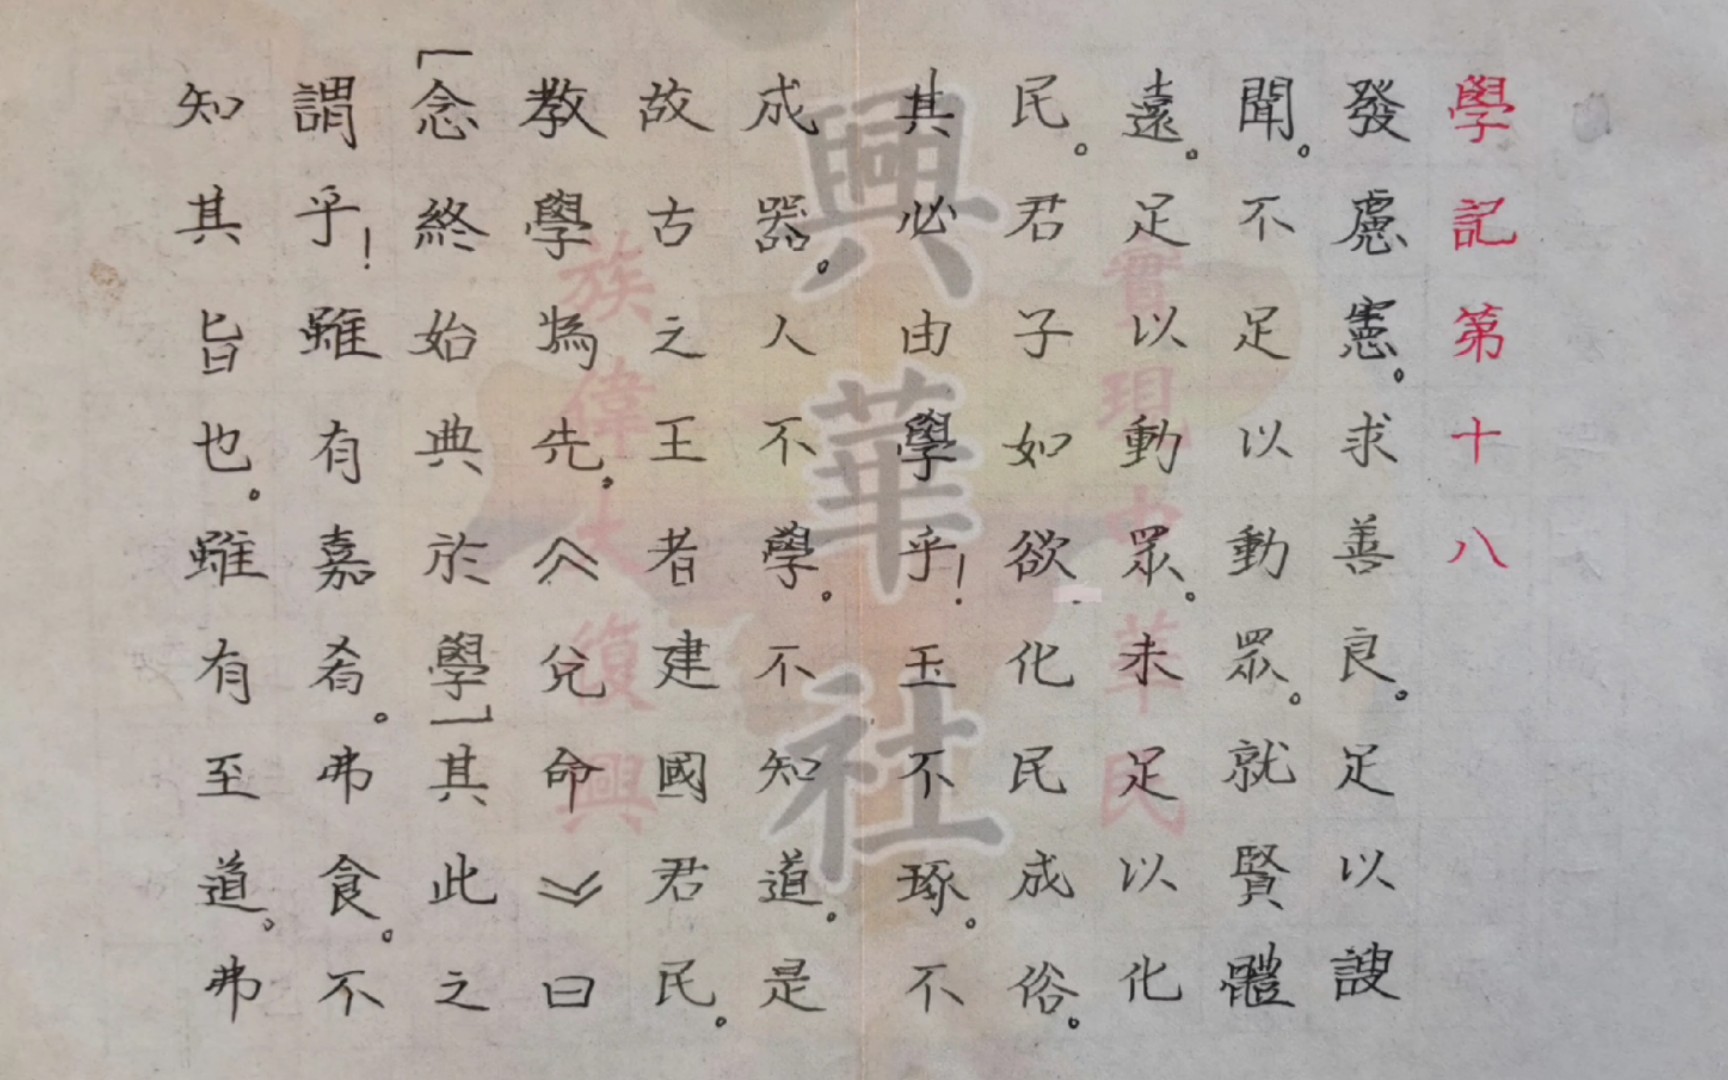 學記第十八
發慮憲。求善良。足以謏
聞。不足以動眾。就賢體
遠。足以動眾。未足以化
民。君子如欲化民成俗。
其必由學乎!玉不琢。不
成器。人不學。不知道。是
故古之王者建國君民。
教學為先。《兌命》曰
「念終始典於學」其此之
謂乎!雖有嘉肴。弗食。不
知其旨也。雖有至道。弗
興華社
實現中華民
族偉大復興